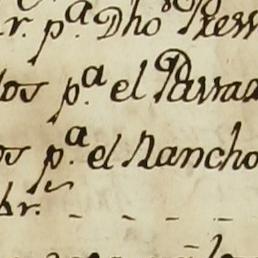 r. p.ª Dho Press
los p.ª el Parraa
os p.ª el Rancho
br.